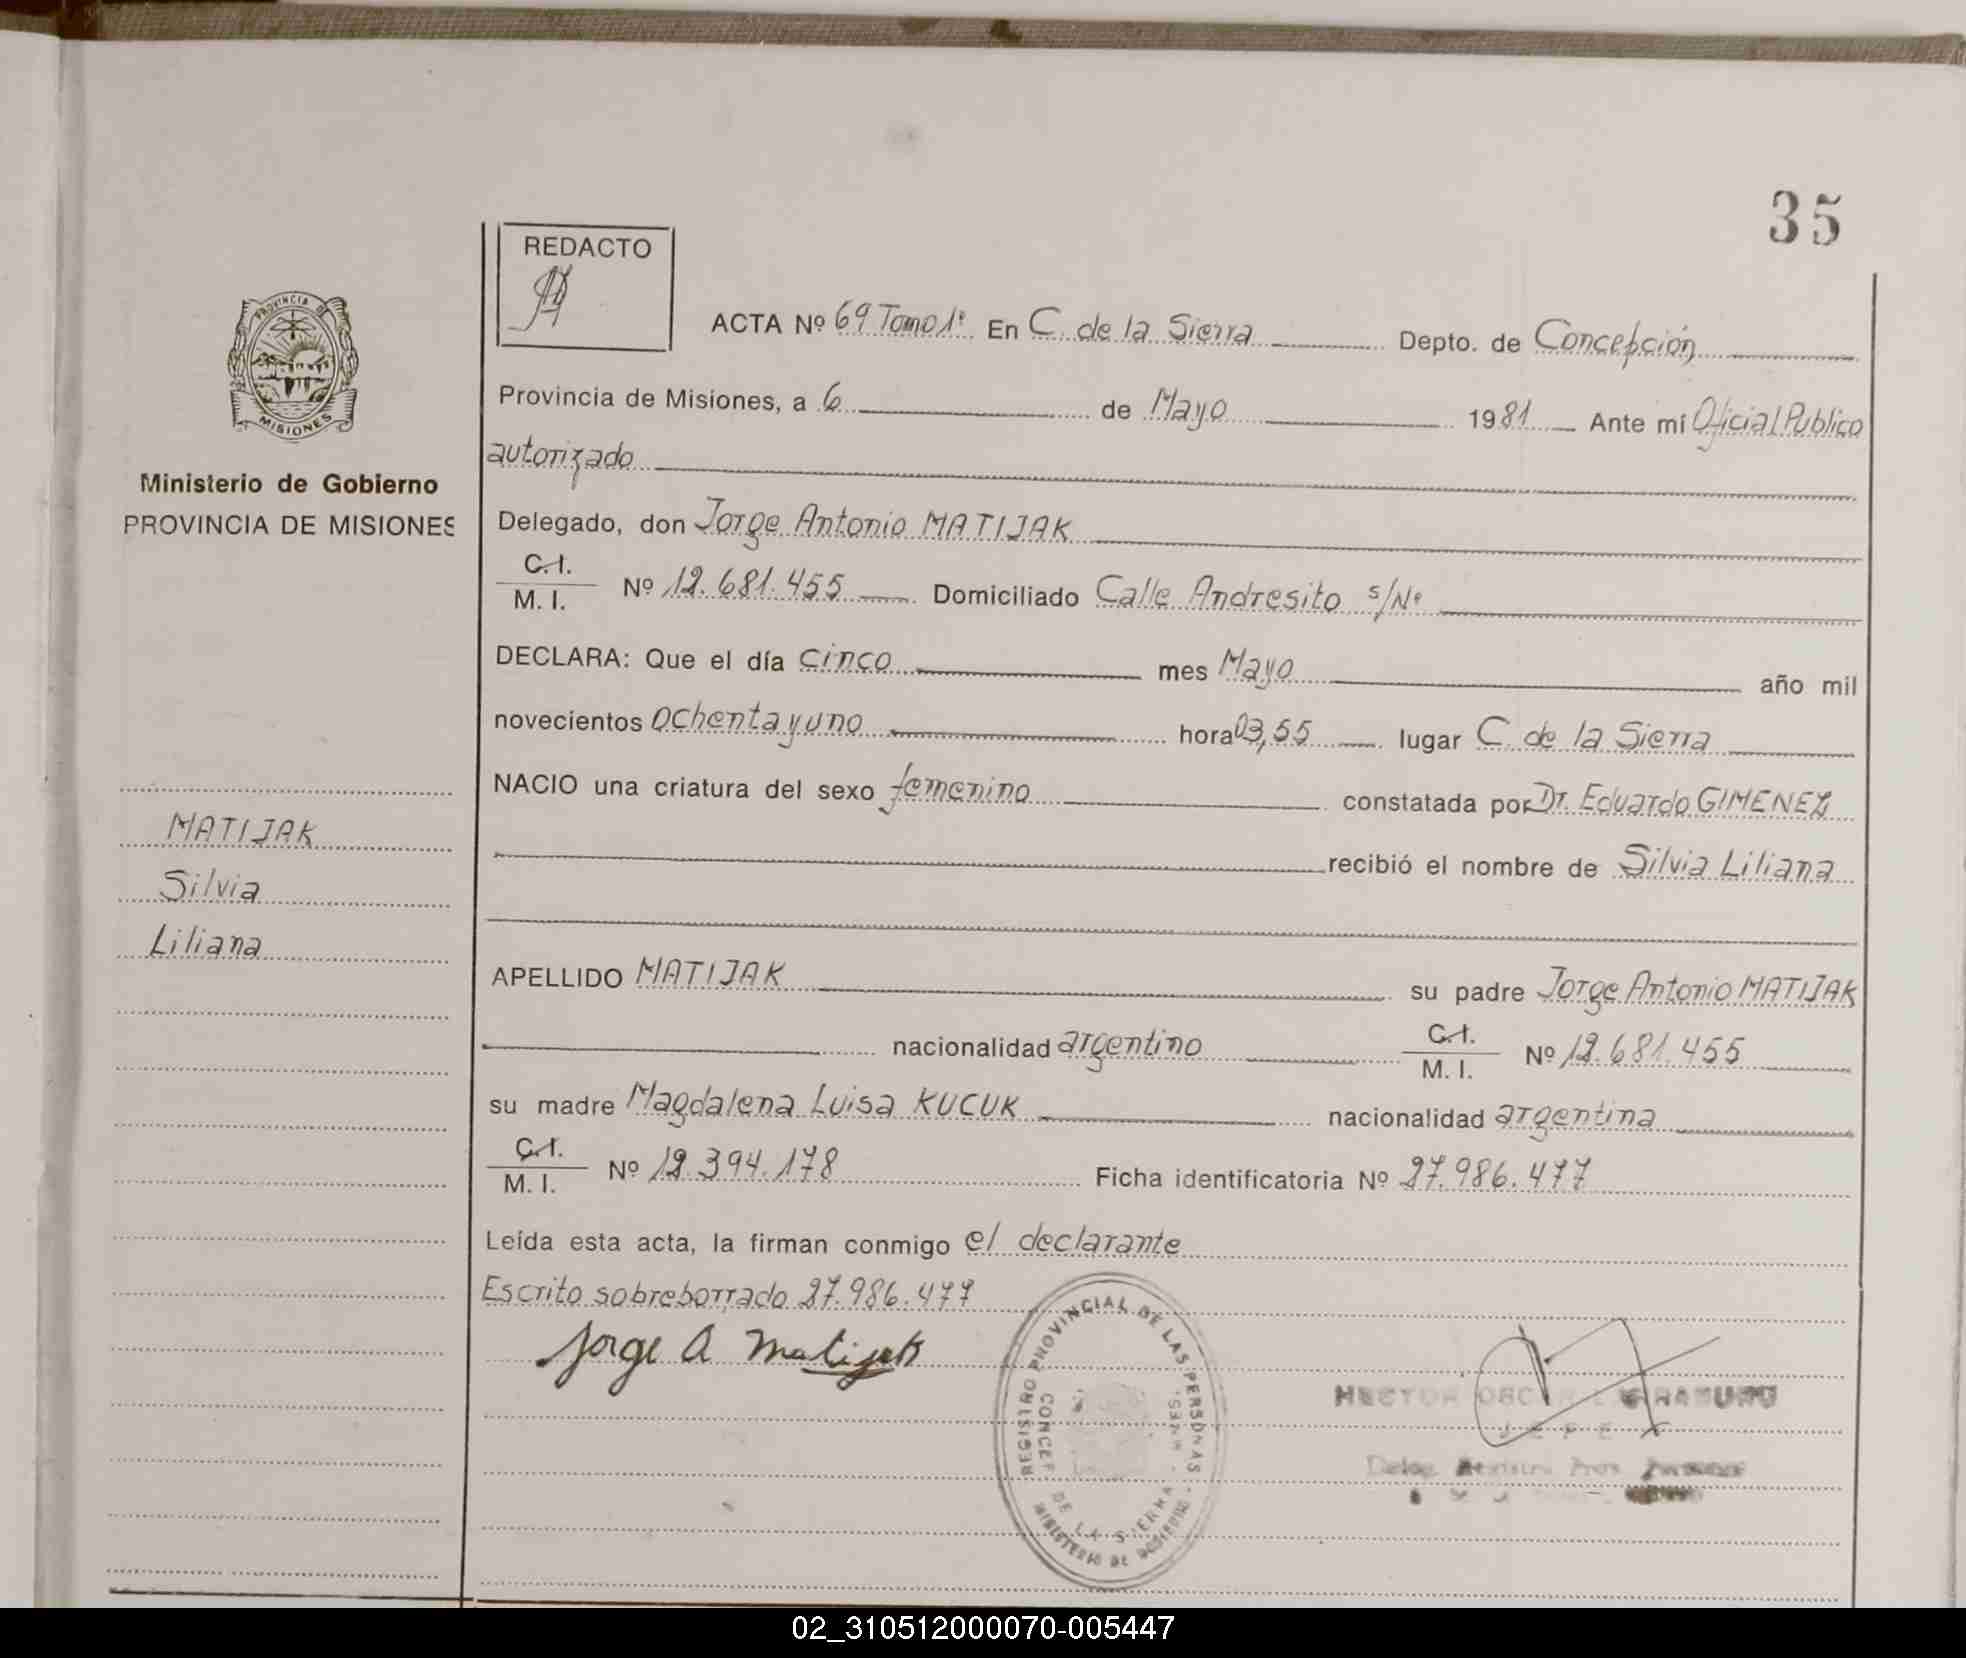 35
REDACTO
ACTA Nº 69 Tomo 1º En C. de la Sierra Depto. de Concepción
Provincia de Misiones, a 6 de Mayo 1981 Ante mí Oficial Publico
autorizado
Delegado, don Jorge Antonio MATIJAK
C.I.
M. I. Nº 12.681.455 Domiciliado Calle Andresito s/Nº
DECLARA: Que el día cinco mes Mayo año mil
novecientos ochenta y uno hora 03,55 lugar C. de la Sierra
NACIO una criatura del sexo femenino constatada por Dr. Eduardo GIMENEZ
recibió el nombre de Silvia Liliana
APELLIDO MATIJAK su padre Jorge Antonio MATIJAK
nacionalidad argentino C.I.
M. I. Nº 12.681.455
su madre Magdalena Luisa KUCUK nacionalidad argentina
C.I.
M. I. Nº 12.394.178 Ficha identificatoria Nº 27.986.477
Leída esta acta, la firman conmigo el declarante
Escrito sobreborrado 27.986.477
Jorge A Matijak
PROVINCIA DE
MISIONES
Ministerio de Gobierno
PROVINCIA DE MISIONES
MATIJAK
Silvia
Liliana
REGISTRO PROVINCIAL DE LAS PERSONAS
MINISTERIO DE GOBIERNO
CONCEP. DE LA SIERRA
HECTOR OSCAR
JEFE
02_310512000070-005447